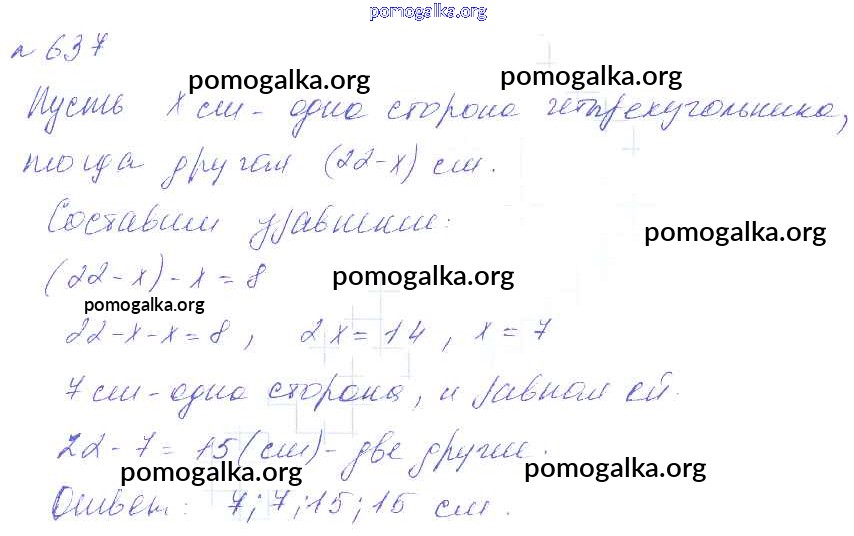 pomogalka.org
№ 637
pomogalka.org pomogalka.org
Пусть x см - одна сторона четырехугольника,
тогда другая (22-x) см.
Составим уравнение:
pomogalka.org
(22-x)-x=8
pomogalka.org
pomogalka.org
22-x-x=8, 2x=14, x=7
7 см - одна сторона, и равная ей.
22-7=15(см)-две другие.
pomogalka.org pomogalka.org
Ответ: 7;7;15;15 см.